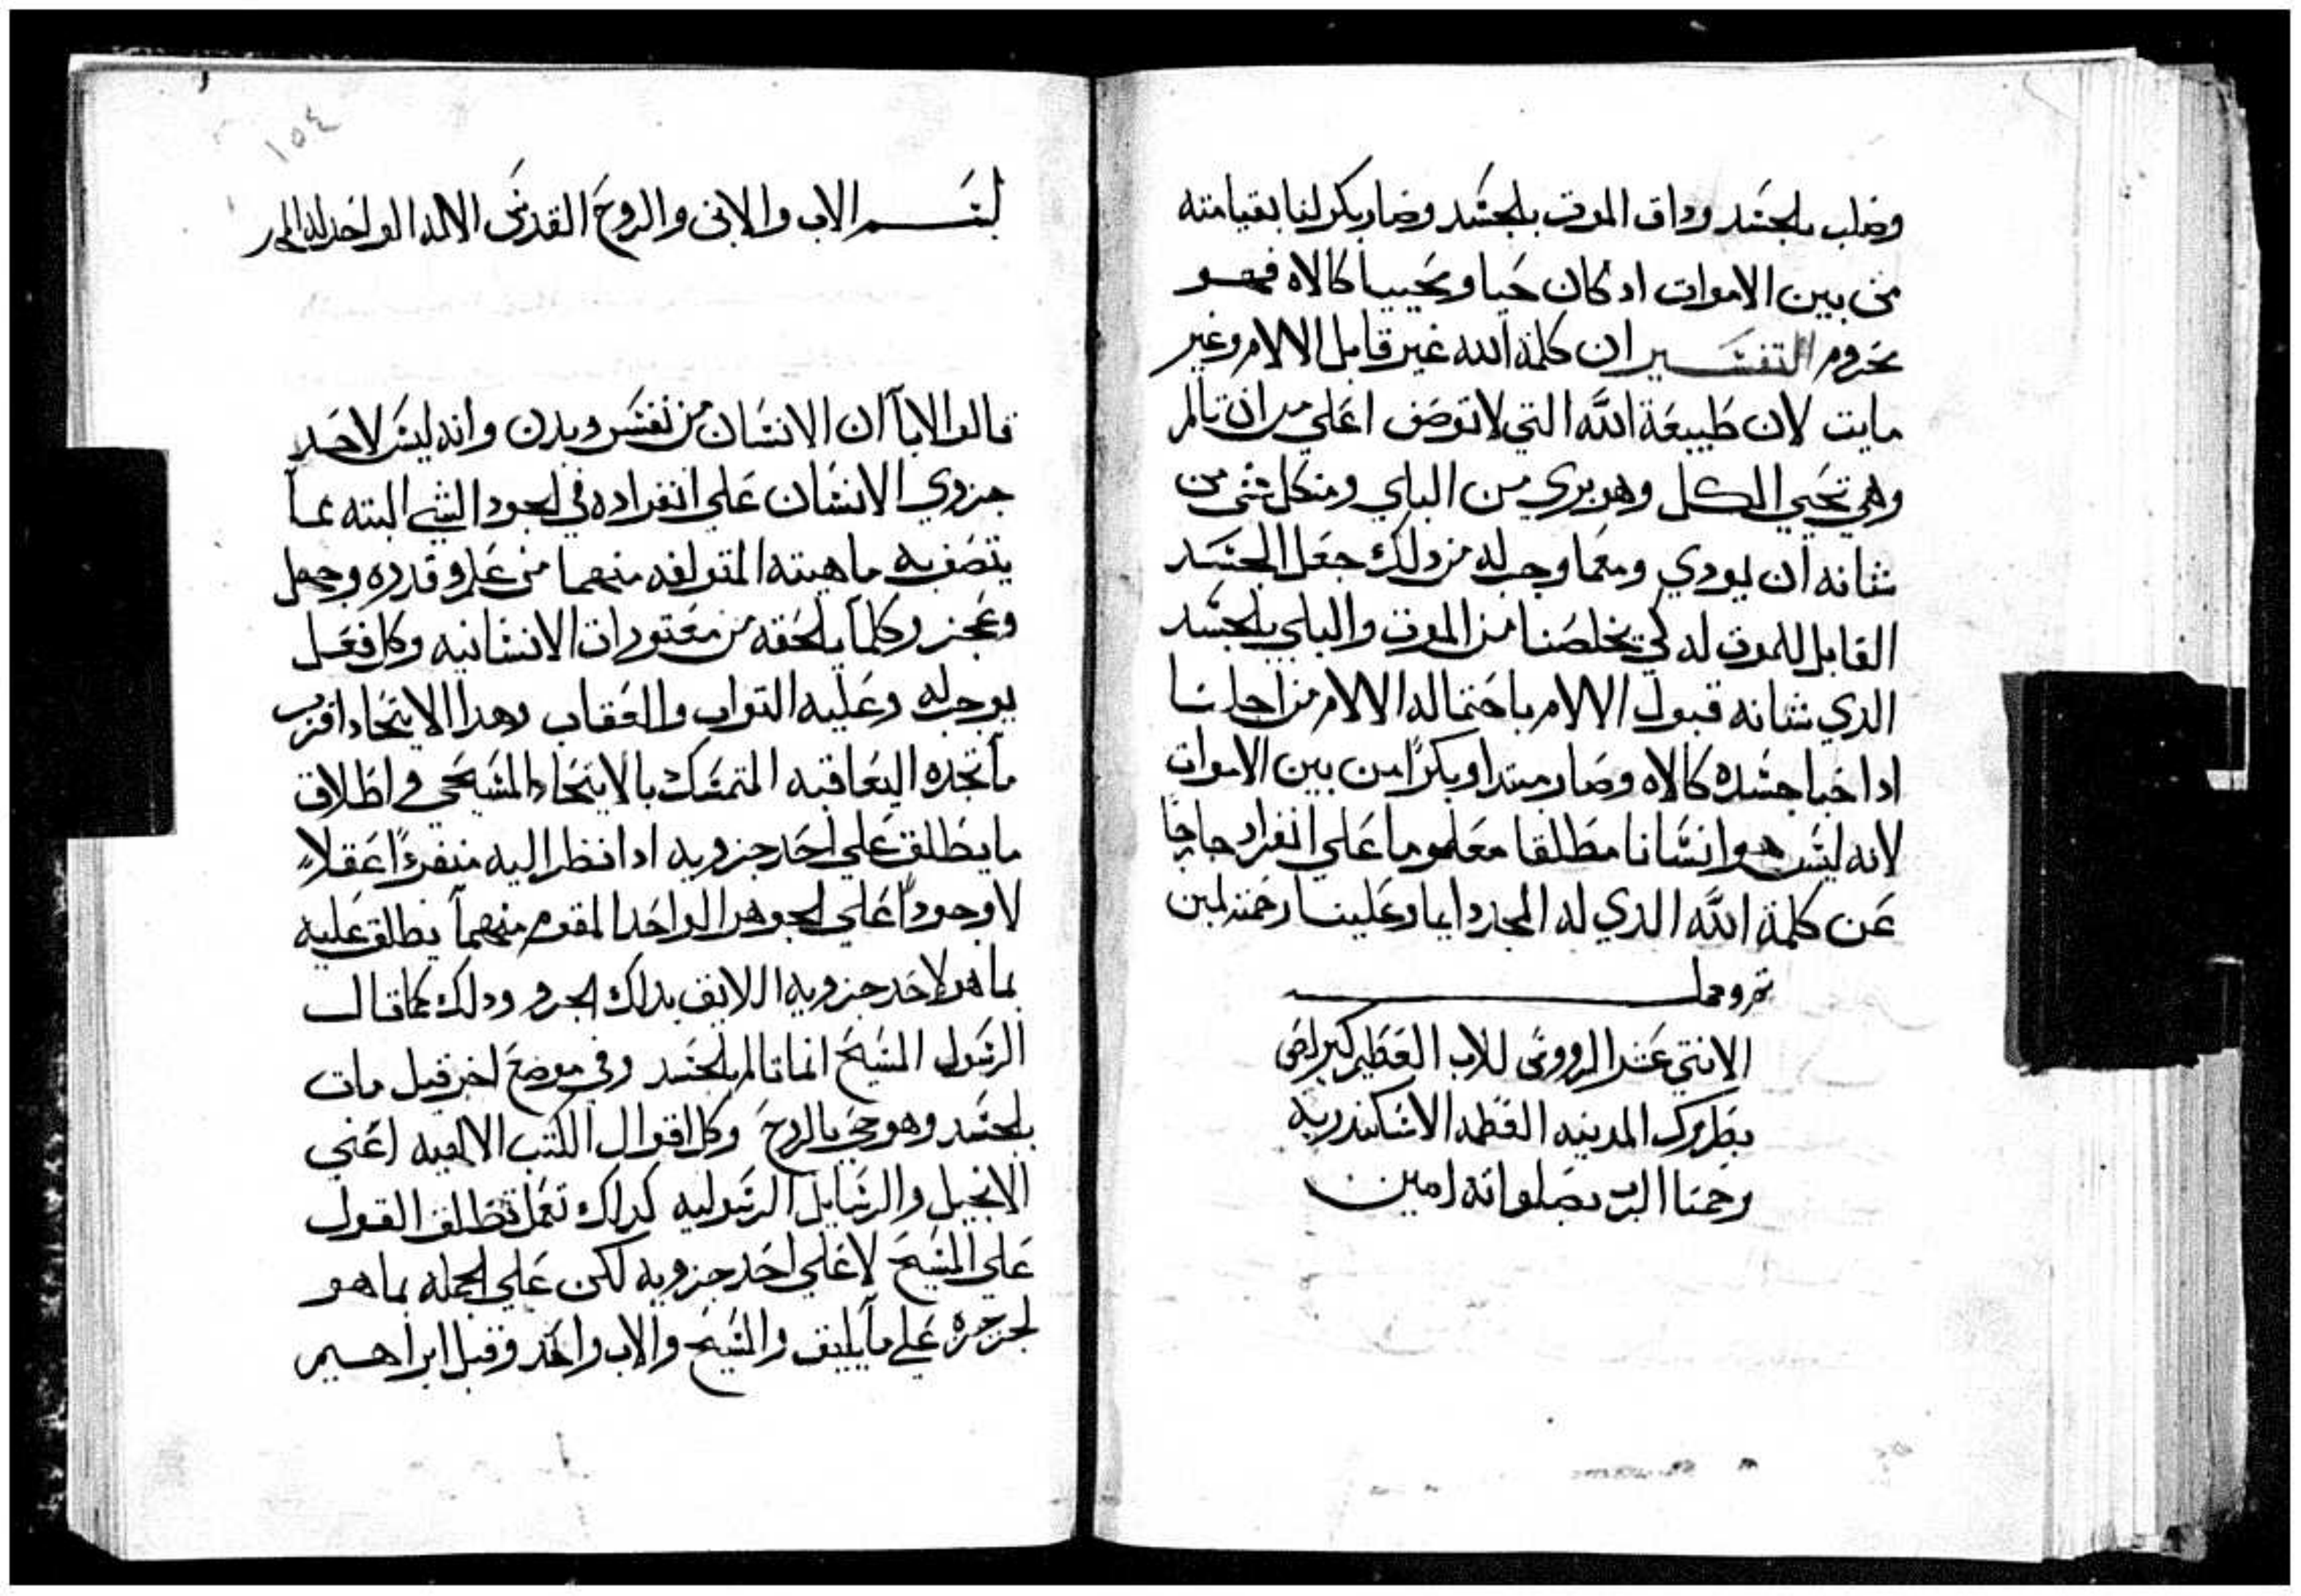 وصلب بالجسد وداق الموت بالجسد وصار بكر لنا بقيامته
من بين الاموات اد كان حيا ومحييا كالاه فهو
محروم التفسير ان كلمة الله غير قابل الالام وغير
مايت لان طبيعة الله التي لا توصف اعلي من ان تالم
وهي تحيي الكل وهو بري من البلي ومن كل شي من
شانه ان يودي ومعما وجب له من دلك جعل الجسد
القابل للموت له لكي يخلصنا من الموت والبلي بالجسد
الدي شانه قبول الالام باحتماله الالام من اجلنا
اد احيا جسده كالاه وصار مبتدا وبكرًا من بين الاموات
لانه ليس هو انسانا مطلقا معلوما على انفراد خارجا
عن كلمة الله الدي له المجد دايما وعلينا رحمته امين
تم وكمل
الانتي عشر الرووس للاب العظيم كيرلص
بطركرك المدينه العظمه الاسكندريه
رحمنا الرب بصلواته امين
١٥٤
بسم الاب والابن والروح القدس الاله الواحد له المجد
قالوا الابا ان الانسان من نفس وبدن وانه ليس لاحد
جزوي الانسان علي انفراده في الجود الشي البته عما
يتصف به ماهيته المتولفه منهما من علم وقدره وجهل
وعجز وكلما يلحقه من معتورات الانسانيه وكل فعل
يوجب له وعليه التواب والعقاب وهدا الايتحاد اقرب
ما تجده اليعاقبه المتمسك بالايتحاد المسيحي في اطلاق
ما يطلق علي احد جزويه ادا نظر اليه منفردًا عقلاً
لا وجودًا علي الجوهر الواحد المقوم منهما يطلق عليه
بما هو لاحد جزويه اللايق بداك الجزو ودلك كما قال
الرسول المسيح انما تالم بالجسد وفي موضع اخر قيل مات
بالجسد وهو حي بالروح وكل اقوال الكتب الالهيه اعني
الانجيل والرسايل الرسوليه كداك تعمل تطلق القول
علي المسيح لا علي احد جزويه لكن علي الجمله بما هو
لجزجزه علي ما يليق والمسيح والاب واحد وقبل ابراهيم